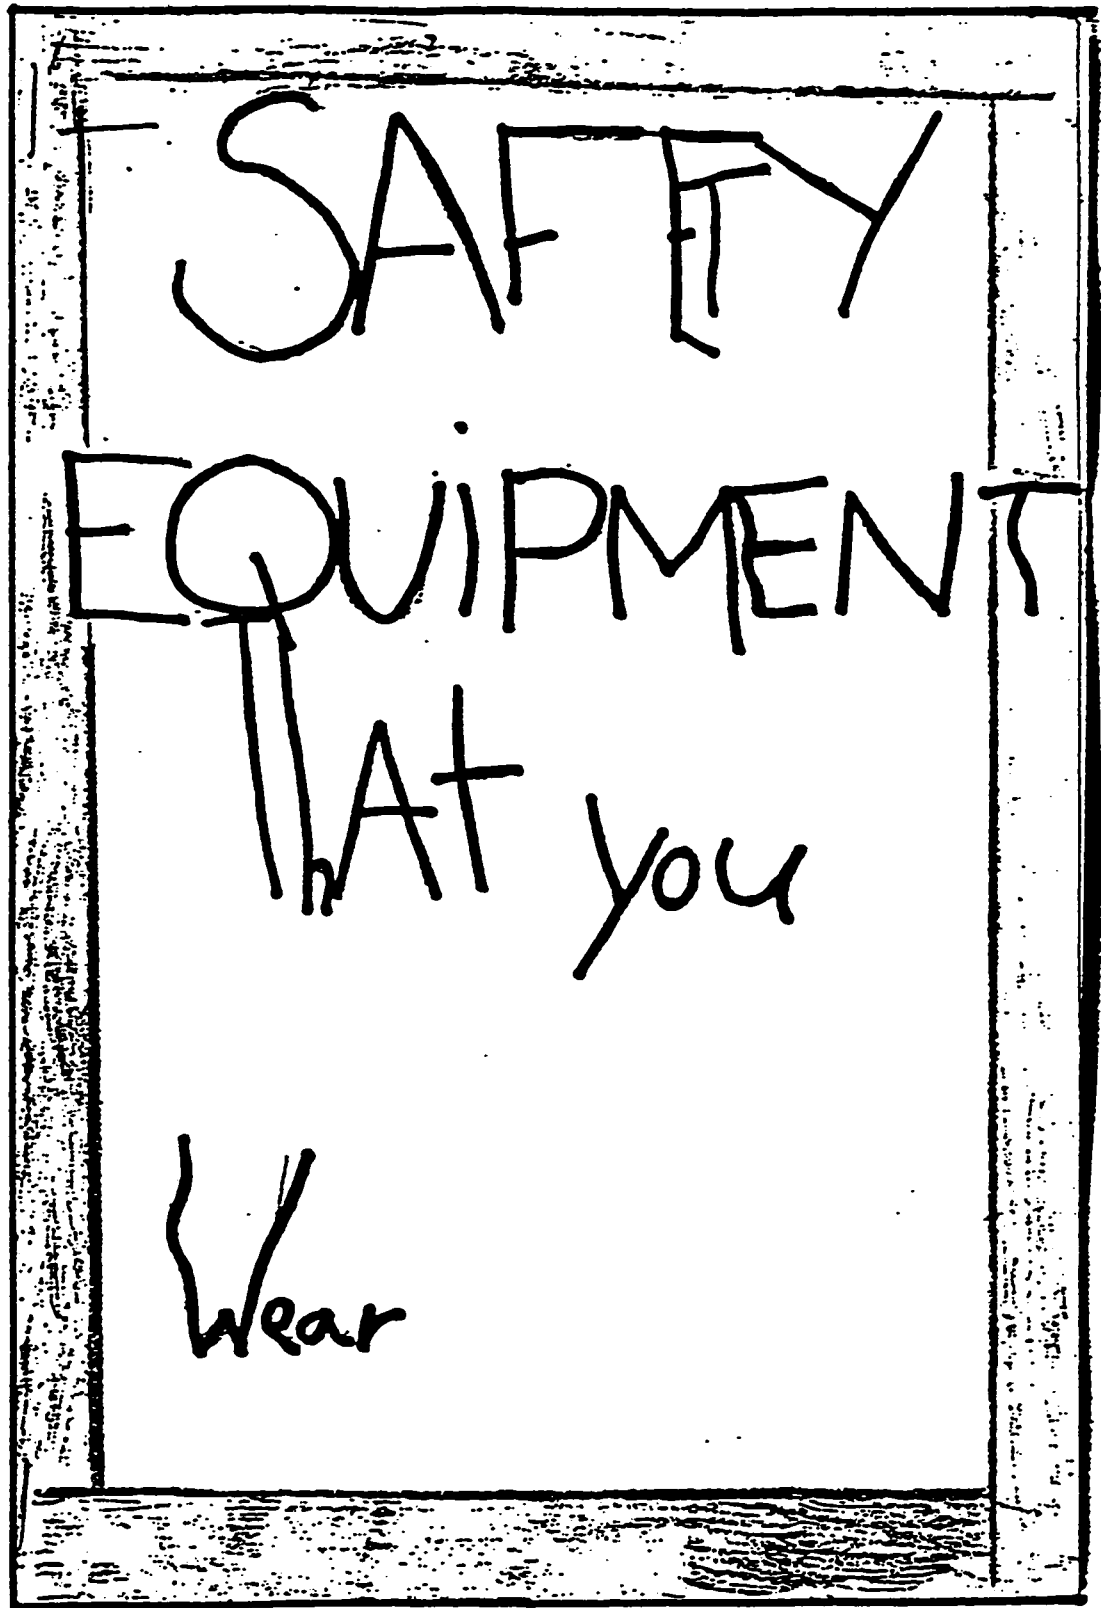 SAFETY
EQUiPMENT
ThAt you
Wear